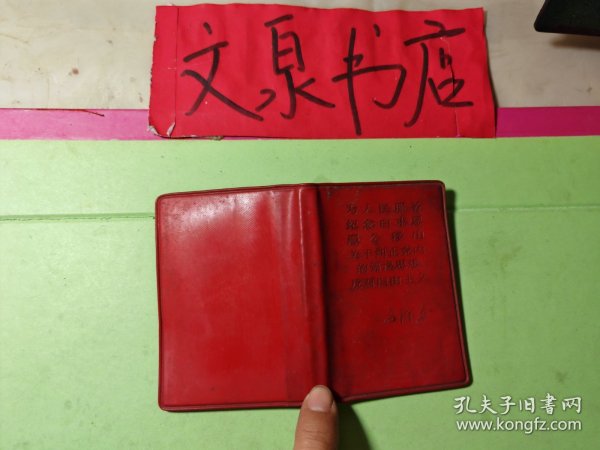 文泉书店
为人民服务
纪念白求恩
愚公移山
关于纠正党内
的错误思想
反对自由主义
毛泽东
孔夫子旧书网
www.kongfz.com